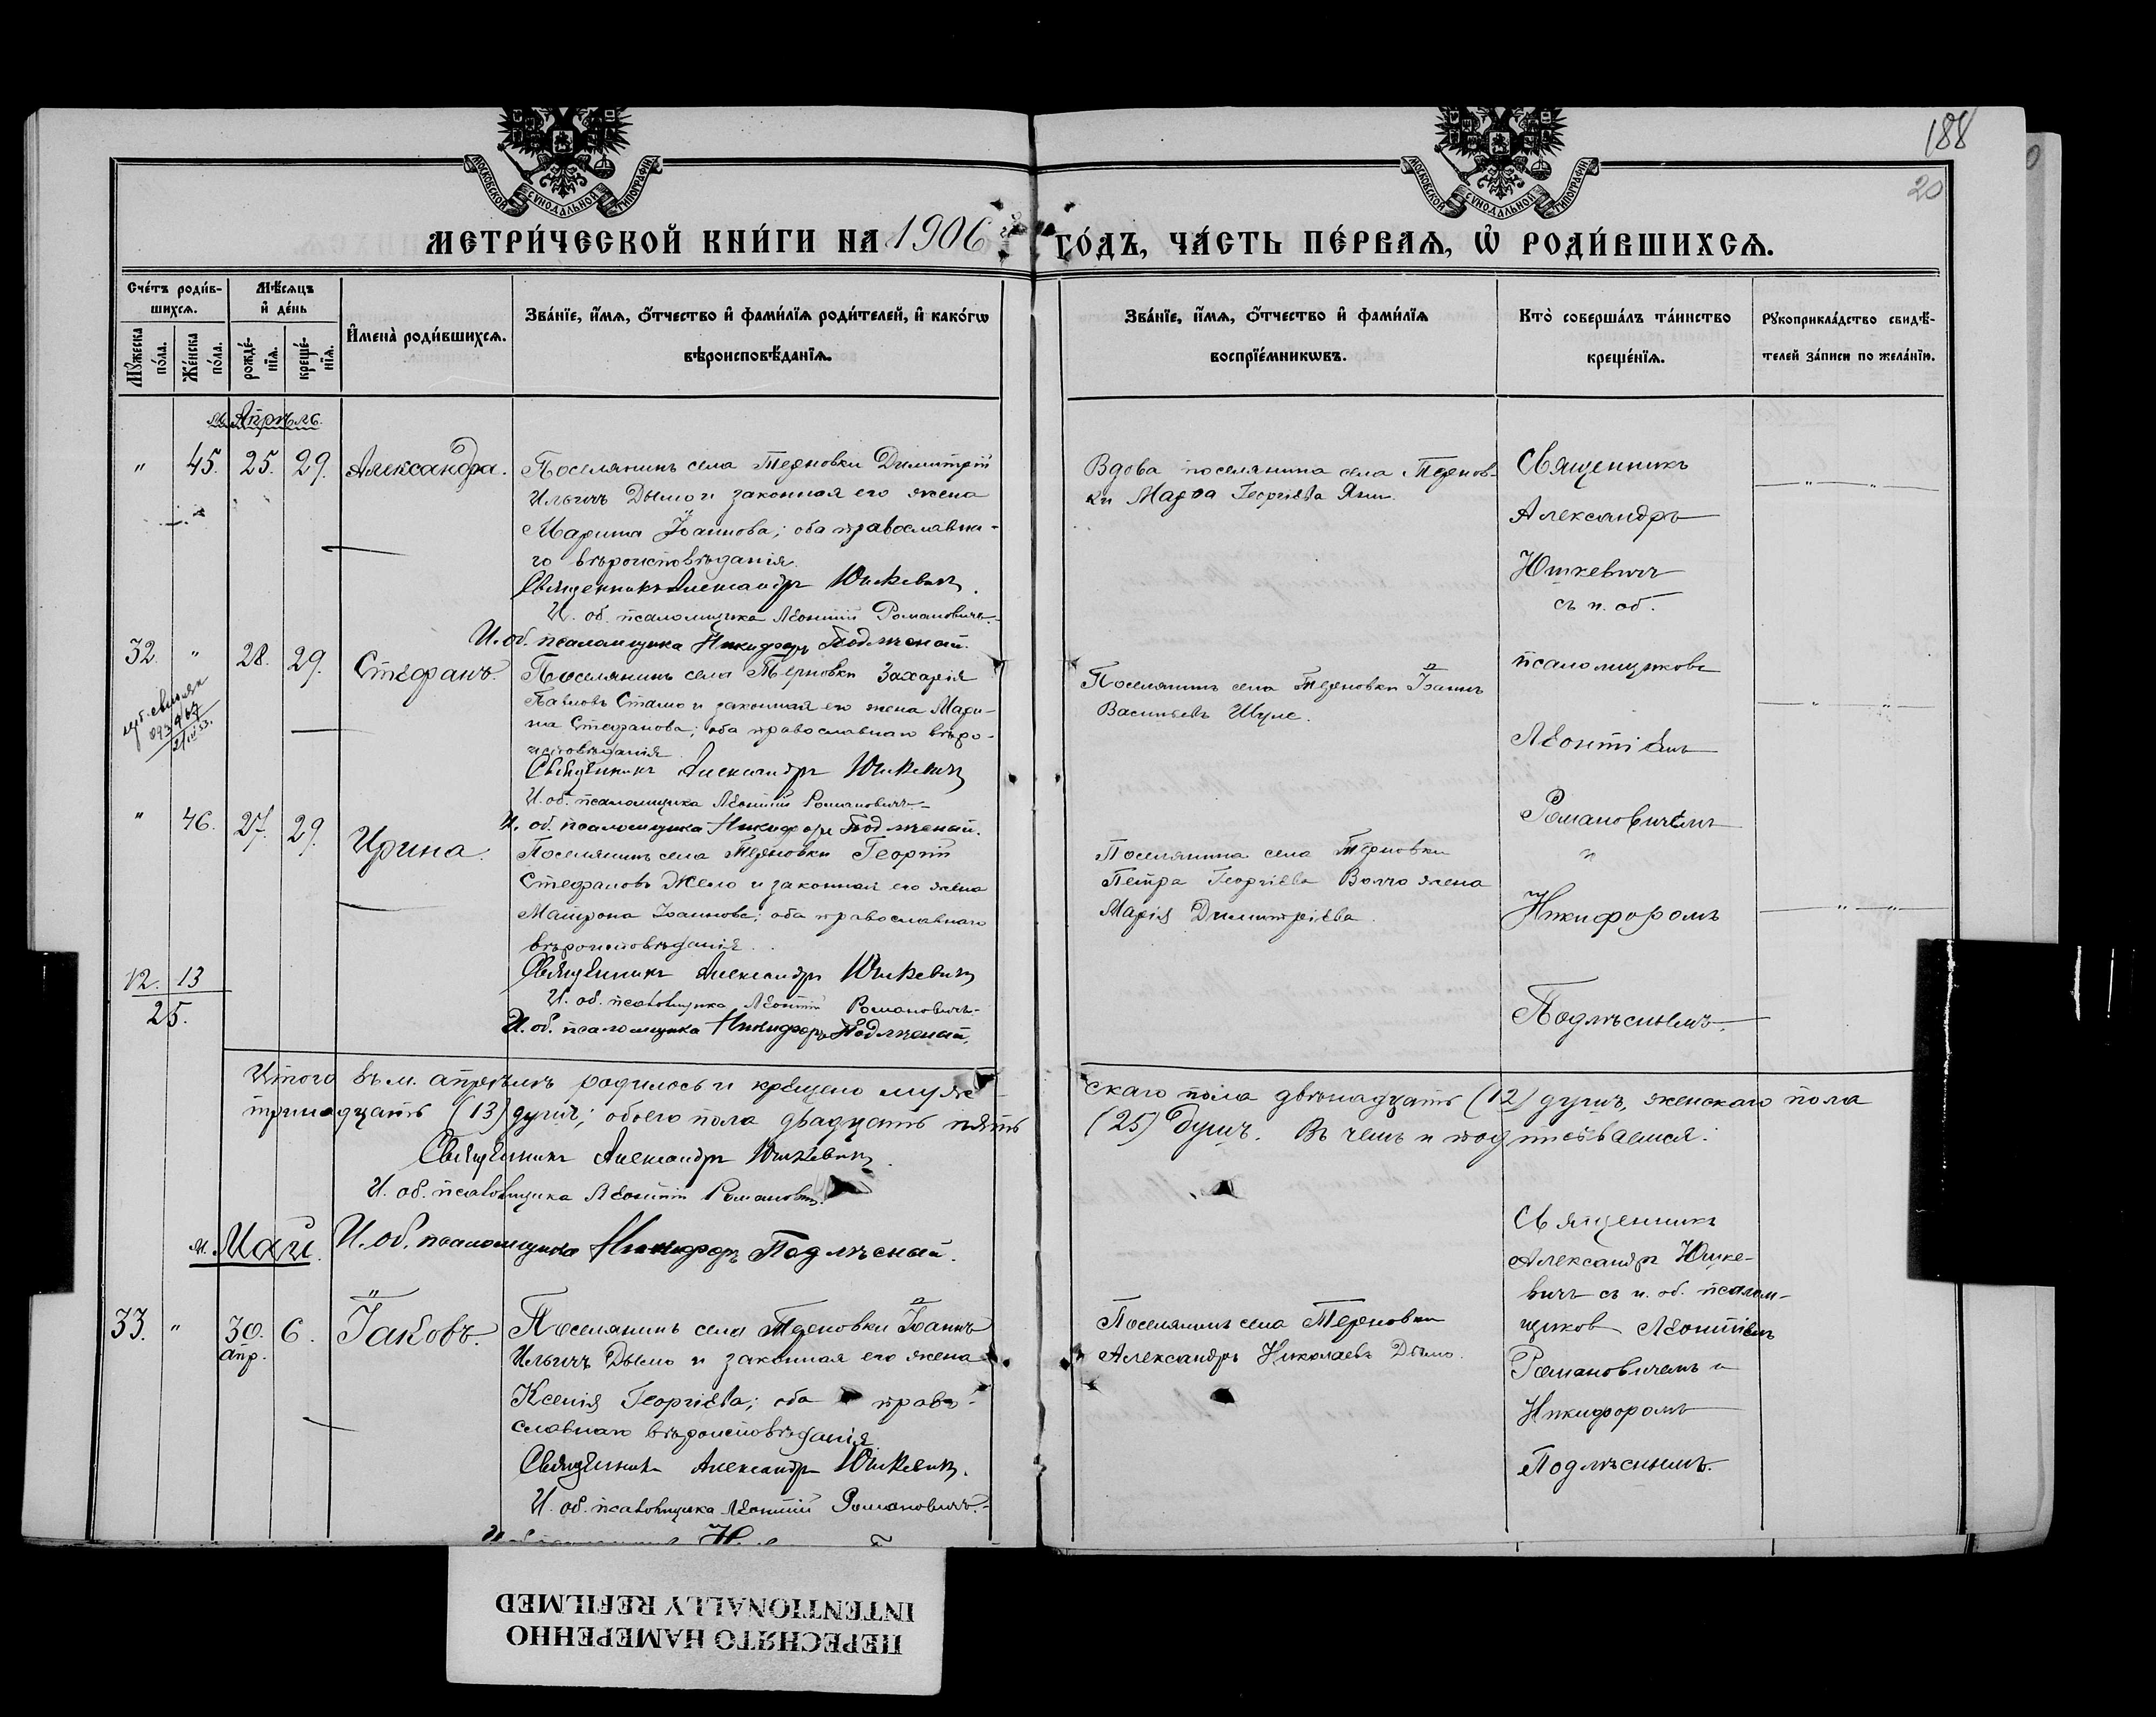 188
20
МОСКОВСКОЙ СѴНОДАЛЬНОЙ ТИПОГРАФІИ
МОСКОВСКОЙ СѴНОДАЛЬНОЙ ТИПОГРАФІИ
МЕТРИ́ЧЕСКОЙ КНИ́ГИ НА 1906 й ГО́ДЪ, ЧА́СТЬ ПЕ́РВАѦ, Ѡ҆ РОДИ́ВШИХСѦ.
Сче́тъ роди́в-
шихсѧ.
Мѣ́сѧцъ
и҆ де́нь
Мꙋ́жеска по́ла.
Же́нска по́ла.
рожде́-
нїѧ.
креще́-
нїѧ.
И҆мена̀ роди́вшихсѧ.
Зва́нїе, и҆́мѧ, ѻ҆́тчество и҆ фами́лїѧ роди́телей, и҆ како́гѡ
вѣроисповѣ́данїѧ.
Зва́нїе, и҆́мѧ, ѻ҆́тчество и҆ фами́лїѧ
воспрїе́мникѡвъ.
Кто̀ соверша́лъ та́инство
креще́нїѧ.
Рꙋкоприкла́дство свидѣ́-
телей за́писи по жела́нїю.
м. Апрѣль.
" 45. 25. 29. Александра.
Поселянинъ села Терновки Димитрій
Ильичъ Дымо и законная его жена
Марина Іоаннова; оба православна-
го вѣроисповѣданія.
Священникъ Александръ Юшкевичъ.
И. об. псаломщика Леонтій Романовичъ.
И. об. псаломщика Никифоръ Подлѣсный.
Вдова поселянина села Тернов-
ки Георгіева
Священникъ
Александръ
Юшкевичъ
съ и. об.
псаломщиковъ
Леонтіемъ
Романовичемъ
и
Никифоромъ
Подлѣснымъ.
32. " 28. 29. Стефанъ.
Поселянинъ села Терновки Захарія
Павловъ Стамо и законная его жена Мари-
на Стефанова; оба православнаго вѣро-
исповѣданія
Священникъ Александръ Юшкевичъ
И. об. псаломщика Леонтій Романовичъ
И. об. псаломщика Никифоръ Подлѣсный.
Поселянинъ села Терновки Іоаннъ
Васильевъ
" 46. 27. 29. Ирина.
Поселянинъ села Терновки Георгій
Стефановъ Жело и законная его жена
Матрона Іоаннова; оба православнаго
вѣроисповѣданія.
Священникъ Александръ Юшкевичъ
И. об. псаломщика Леонтій Романовичъ
И. об. псаломщика Никифоръ Подлѣсный.
Поселянина села Терновки
Петра Георгіева Волчо жена
Марія Димитріева.
12. 13
25.
Итого въ м. апрѣлѣ родилось и крещено муже- скаго пола двѣнадцать (12) душъ, женскаго пола
тринадцать (13) душъ; обоего пола двадцать пять (25) душъ. Въ чемъ и подписываемся:
Священникъ Александръ Юшкевичъ.
И. об. псаломщика Леонтій Романовичъ.
И. об. псаломщика Никифоръ Подлѣсный.
м. Май.
33. " 30. апр. 6. Іаковъ.
Поселянинъ села Терновки Іоаннъ
Ильичъ Дымо и законная его жена
Ксенія Георгіева; оба право-
славнаго вѣроисповѣданія
Священникъ Александръ Юшкевичъ.
И. об. псаломщика Леонтій Романовичъ.
Поселянинъ села Терновки
Александръ Николаевъ Дымо.
Священникъ
Александръ Юшке-
вичъ съ и. об. псалом-
щиков Леонтіемъ
Романовичемъ и
Никифоромъ
Подлѣснымъ.
ПЕРЕСНЯТО НАМЕРЕННО
INTENTIONALLY REFILMED